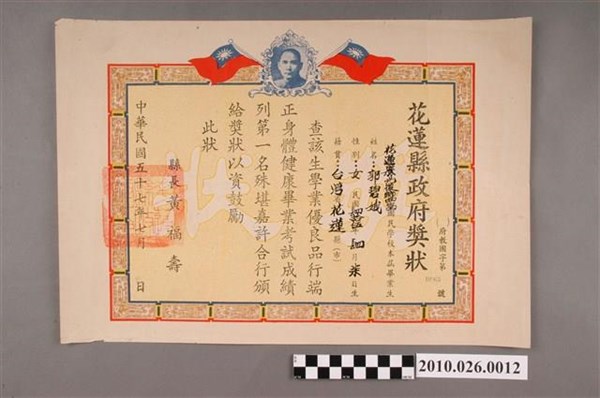 花蓮縣政府獎狀
府教國字第
號
國民學校本屆畢業生
姓名：郭碧娥
性別：女
民國
年
月
日生
籍貫：台灣
花蓮縣(市)
查該生學業優良品行端
正身體健康畢業考試成績
列第一名殊堪嘉許合行頒
給獎狀以資鼓勵
此狀
縣長黃福壽
中華民國五十七年七月
日
2010.026.0012